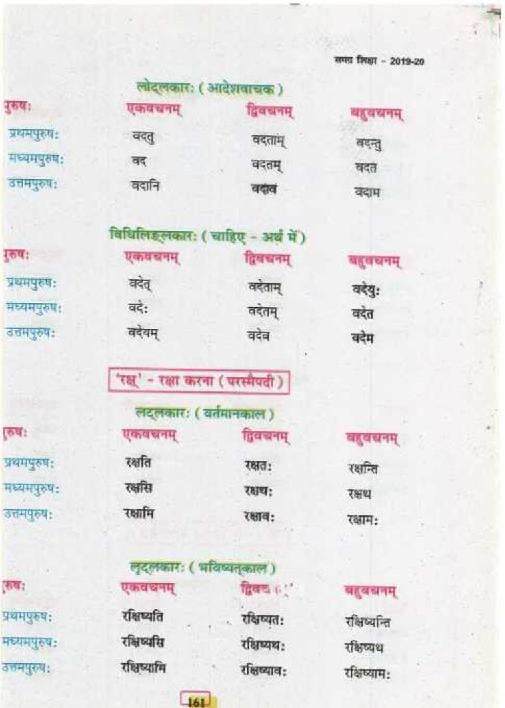 समग्र शिक्षा - 2019-20
लोट्लकारः ( आदेशवाचक )
पुरुषः एकवचनम् द्विवचनम् बहुवचनम्
प्रथमपुरुषः वदतु वदताम् वदन्तु
मध्यमपुरुषः वद वदतम् वदत
उत्तमपुरुषः वदानि वदाव वदाम
विधिलिङ्लकारः ( चाहिए - अर्थ में )
पुरुषः एकवचनम् द्विवचनम् बहुवचनम्
प्रथमपुरुषः वदेत् वदेताम् वदेयुः
मध्यमपुरुषः वदेः वदेतम् वदेत
उत्तमपुरुषः वदेयम् वदेव वदेम
'रक्ष्' - रक्षा करना ( परस्मैपदी )
लट्लकारः ( वर्तमानकाल )
पुरुषः एकवचनम् द्विवचनम् बहुवचनम्
प्रथमपुरुषः रक्षति रक्षतः रक्षन्ति
मध्यमपुरुषः रक्षसि रक्षथः रक्षथ
उत्तमपुरुषः रक्षामि रक्षावः रक्षामः
लृट्लकारः ( भविष्यत्काल )
पुरुषः एकवचनम् बहुवचनम्
प्रथमपुरुषः रक्षिष्यति रक्षिष्यतः रक्षिष्यन्ति
मध्यमपुरुषः रक्षिष्यसि रक्षिष्यथः रक्षिष्यथ
उत्तमपुरुषः रक्षिष्यामि रक्षिष्यावः रक्षिष्यामः
161